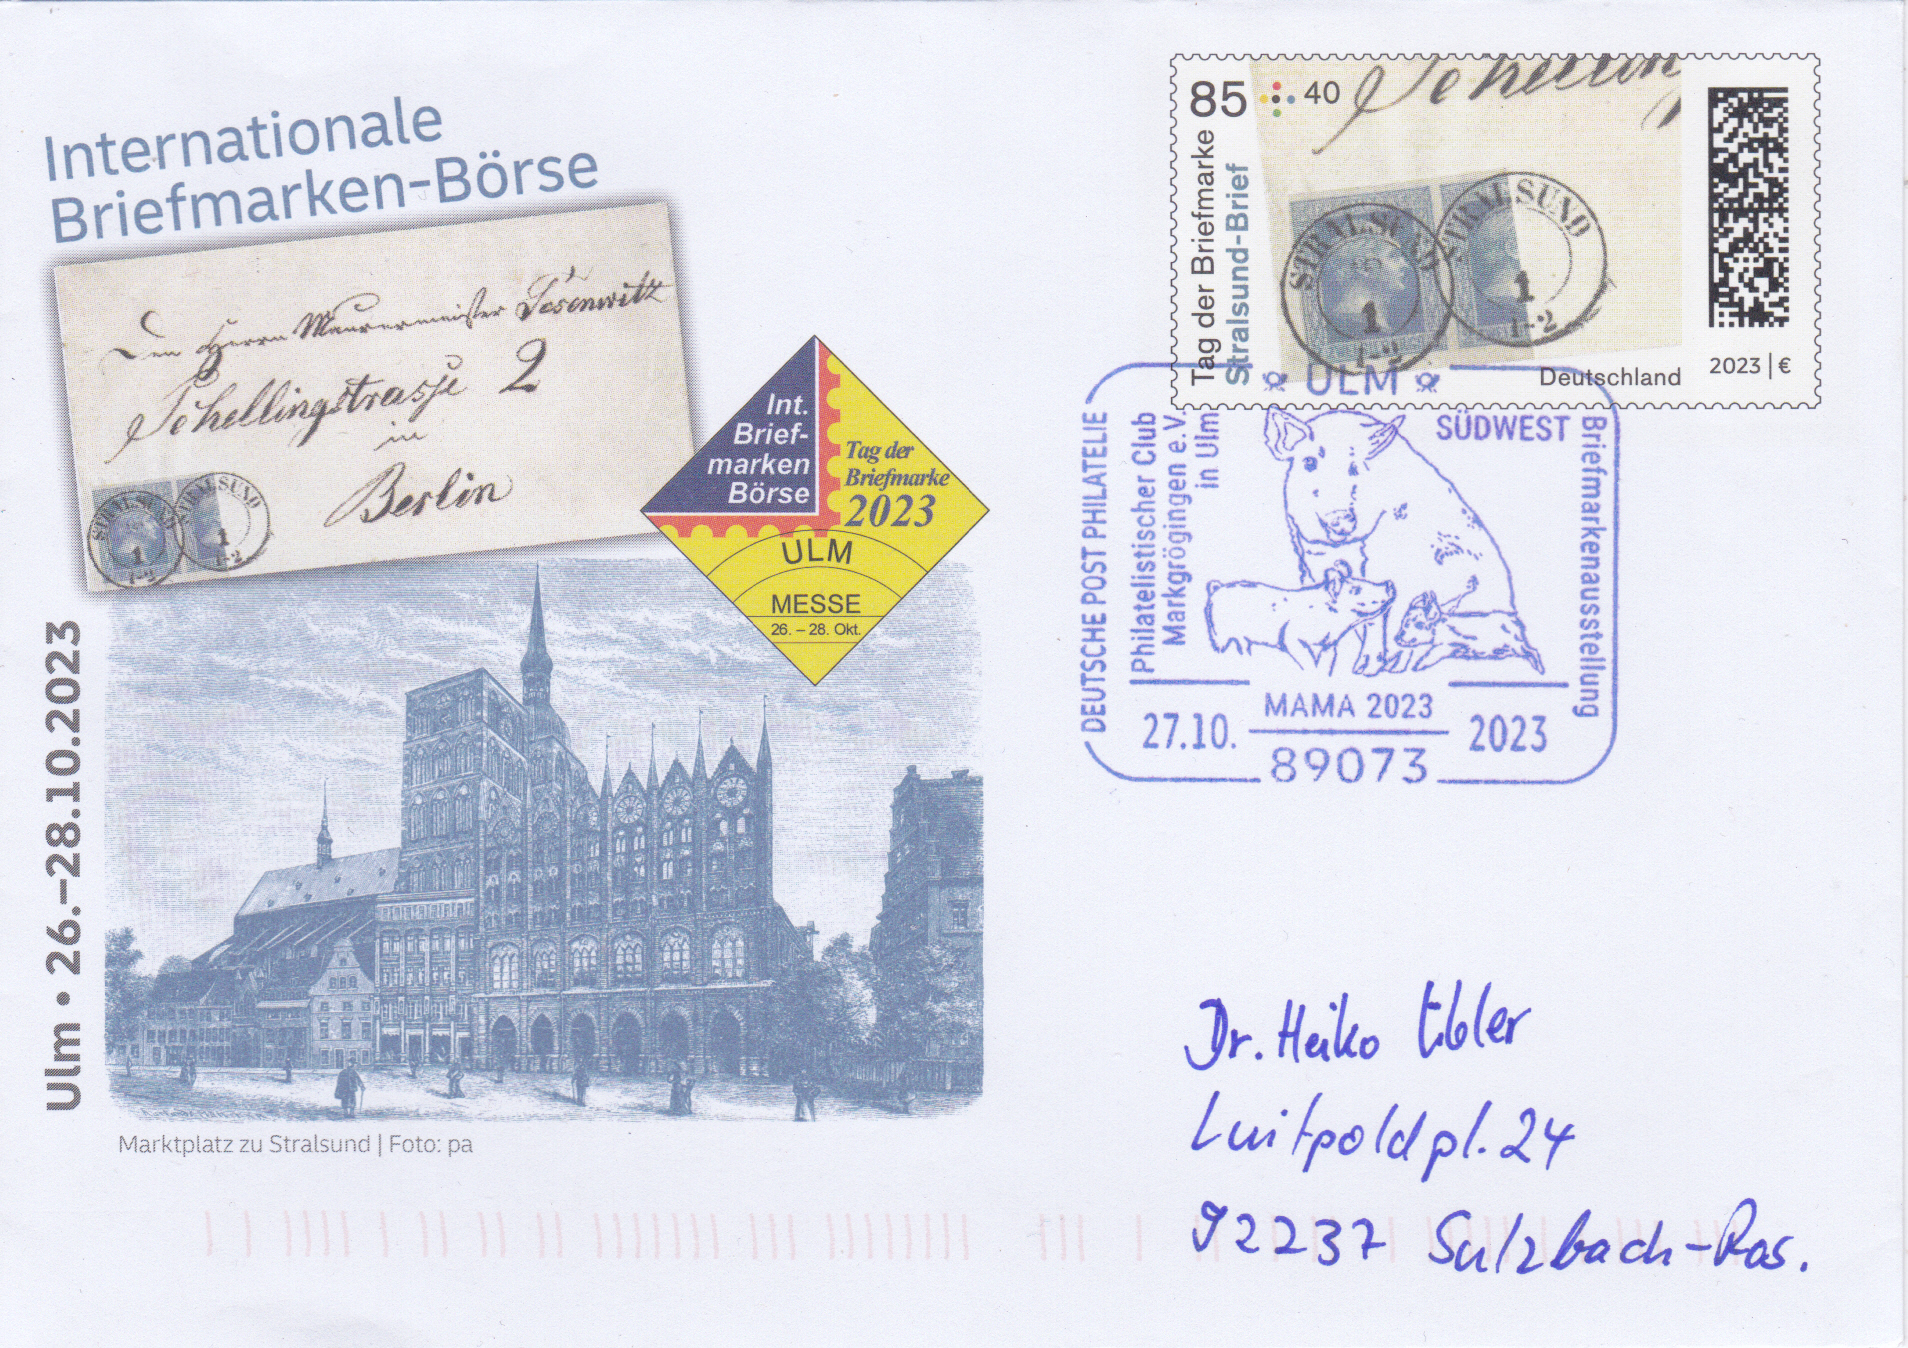 Internationale
Briefmarken-Börse
Den Herrn Maurermeister
Schellingstrasse 2
in
Berlin
STRALSUND
1
1-2
STRALSUND
1
1-2
Int.
Brief-
marken
Börse
Tag der
Briefmarke
2023
ULM
MESSE
26. – 28. Okt.
Ulm • 26.–28.10.2023
Marktplatz zu Stralsund | Foto: pa
85 40
Tag der Briefmarke
Stralsund-Brief
Schellin
STRALSUND
1
1-2
STRALSUND
1
1-2
Deutschland
2023 | €
ULM
DEUTSCHE POST PHILATELIE
Philatelistischer Club
Markgrögingen e.V.
in Ulm
SÜDWEST
Briefmarkenausstellung
MAMA 2023
27.10. 2023
89073
Dr. Heiko Eibler
Luitpoldpl. 24
92237 Sulzbach-Ros.